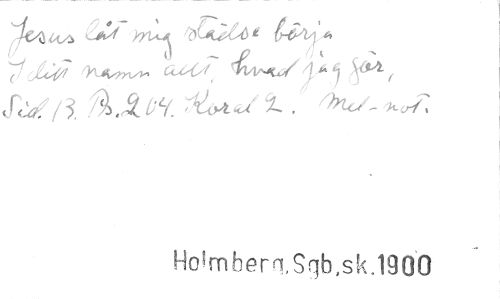 Jesus låt mig städse börja
I ditt namn allt, hvad jag gör,
Sid. 13. Ps. 204. Koral 2. Mel-not.
Holmberg,Sgb,sk.1900